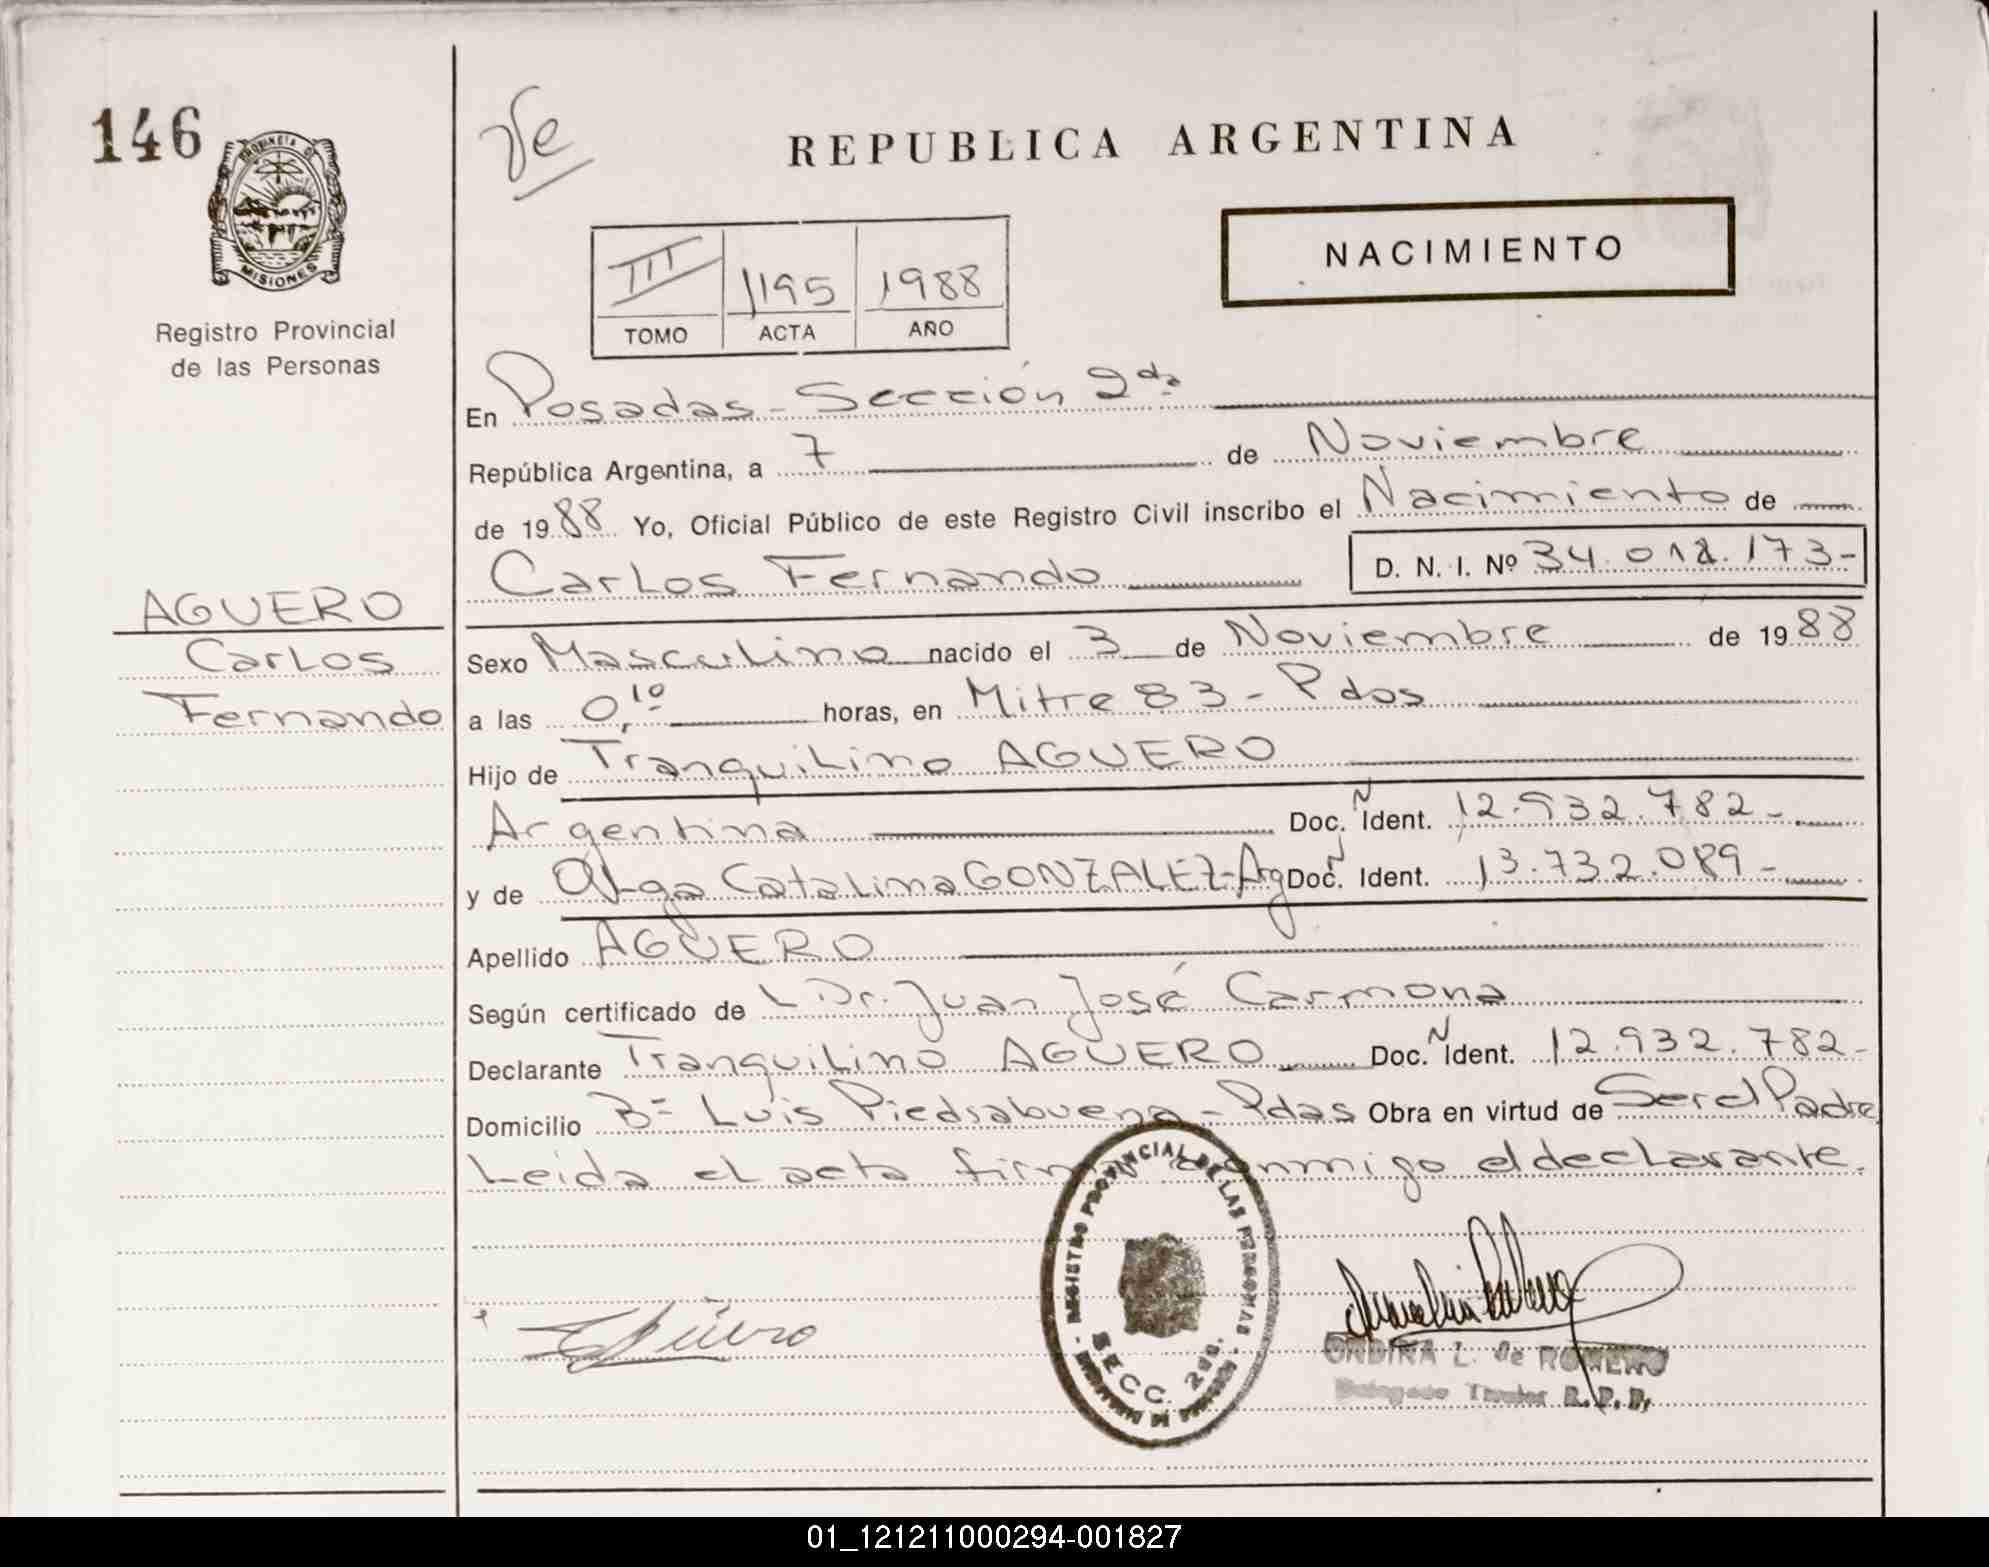 146
PROVINCIA DE
MISIONES
Registro Provincial
de las Personas
AGUERO
Carlos
Fernando
REPUBLICA ARGENTINA
NACIMIENTO
III 1195 1988
TOMO ACTA AÑO
En Posadas - Sección 2da
República Argentina, a 7 de Noviembre
de 1988 Yo, Oficial Público de este Registro Civil inscribo el Nacimiento de
Carlos Fernando D. N. I. Nº 34.012.173-
Sexo Masculino nacido el 3 de Noviembre de 1988
a las 0,10 horas, en Mitre 83 - Pdas
Hijo de Tranquilino AGUERO
Argentina Doc. Ñ Ident. 12.932.782-
y de Olga Catalina GONZALEZ-Arg Doc. Ñ Ident. 13.732.089-
Apellido AGUERO
Según certificado de L Dr. Juan José Carmona
Declarante Tranquilino AGUERO Doc. Ñ Ident. 12.932.782-
Domicilio Bº Luis Piedrabuena - Pdas Obra en virtud de Ser el Padre
Leida el acta firma conmigo el declarante.
REGISTRO PROVINCIAL DE LAS PERSONAS
SECC. 2da.
Agüero
ONDINA L. de ROMERO
Delegado Titular R.P.P.
01_121211000294-001827